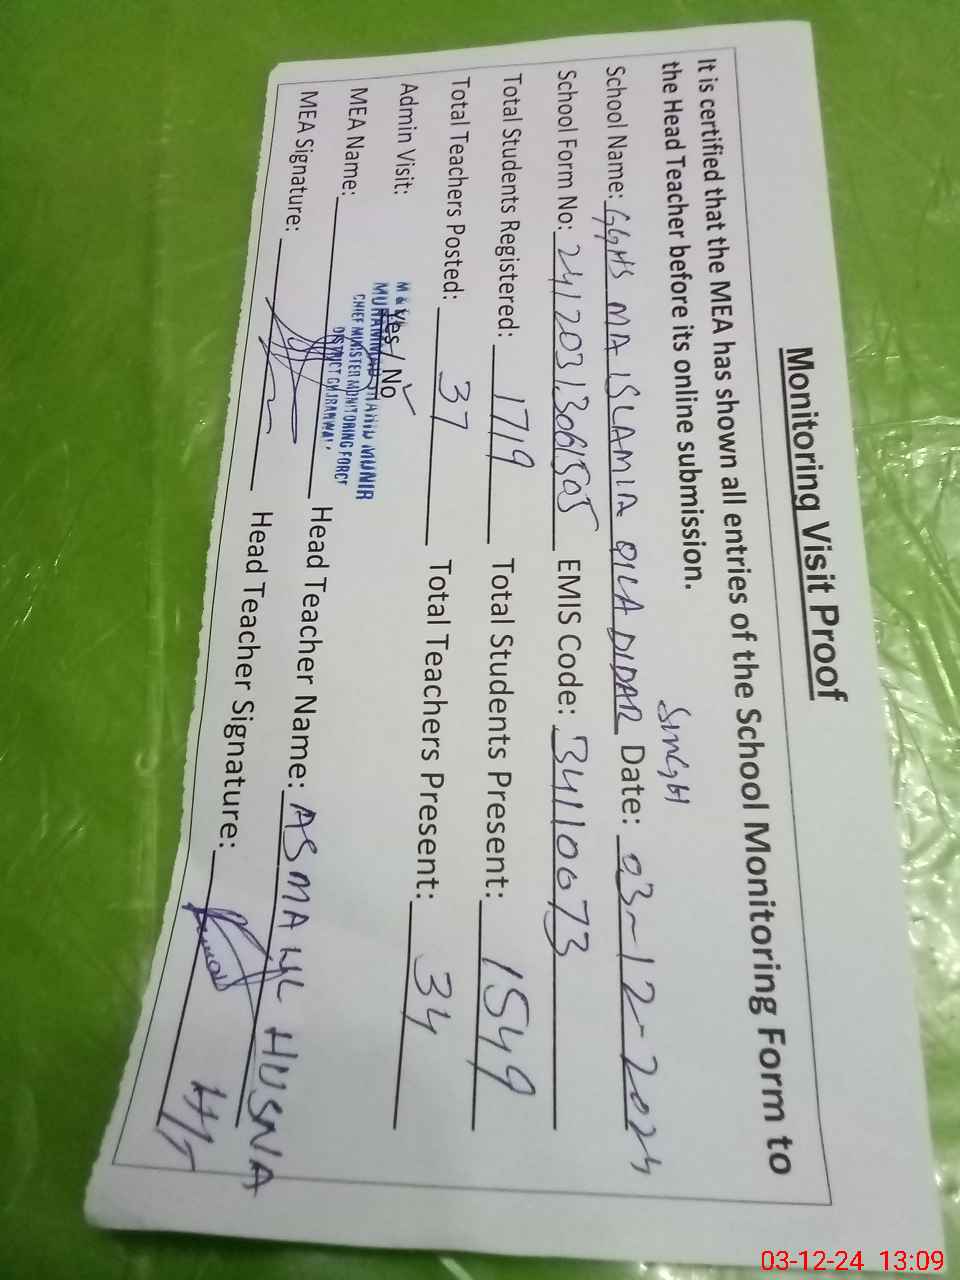 Monitoring Visit Proof
It is certified that the MEA has shown all entries of the School Monitoring Form to
the Head Teacher before its online submission.
SINGH
School Name: GGHS MA ISLAMIA QILA DIDAR Date: 03-12-2024
School Form No: EMIS Code: 34110073
Total Students Registered: 1719 Total Students Present: 1549
Total Teachers Posted: 37 Total Teachers Present: 34
Admin Visit: Yes / No ✓
MUHAMMAD SHAHID MUNIR
CHIEF MINISTER MONITORING FORCE
DISTRICT GUJRANWALA
MEA Name: Head Teacher Name: ASMA UL HUSNA
MEA Signature: Head Teacher Signature: H/T
03-12-24 13:09